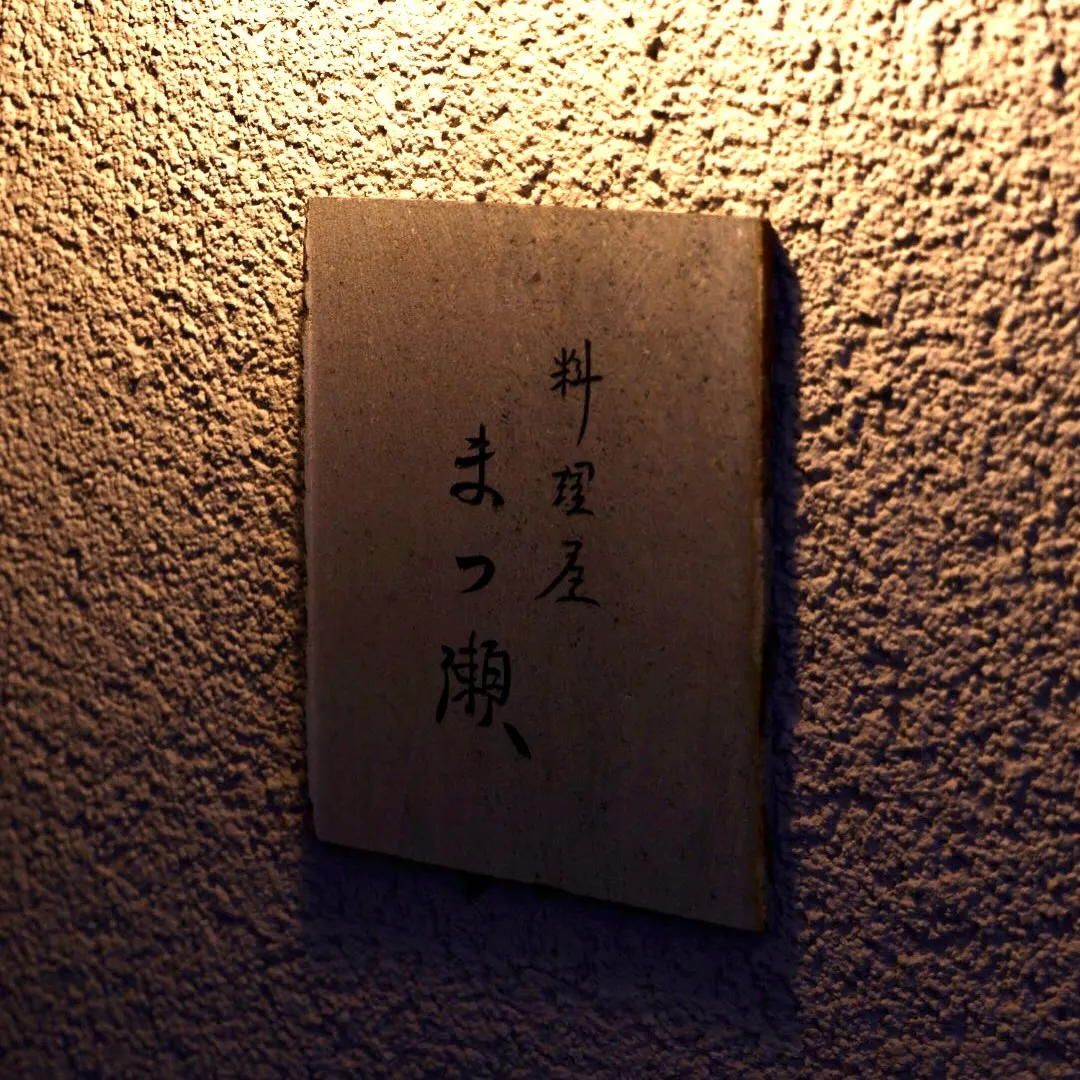 料理屋
まつ瀬